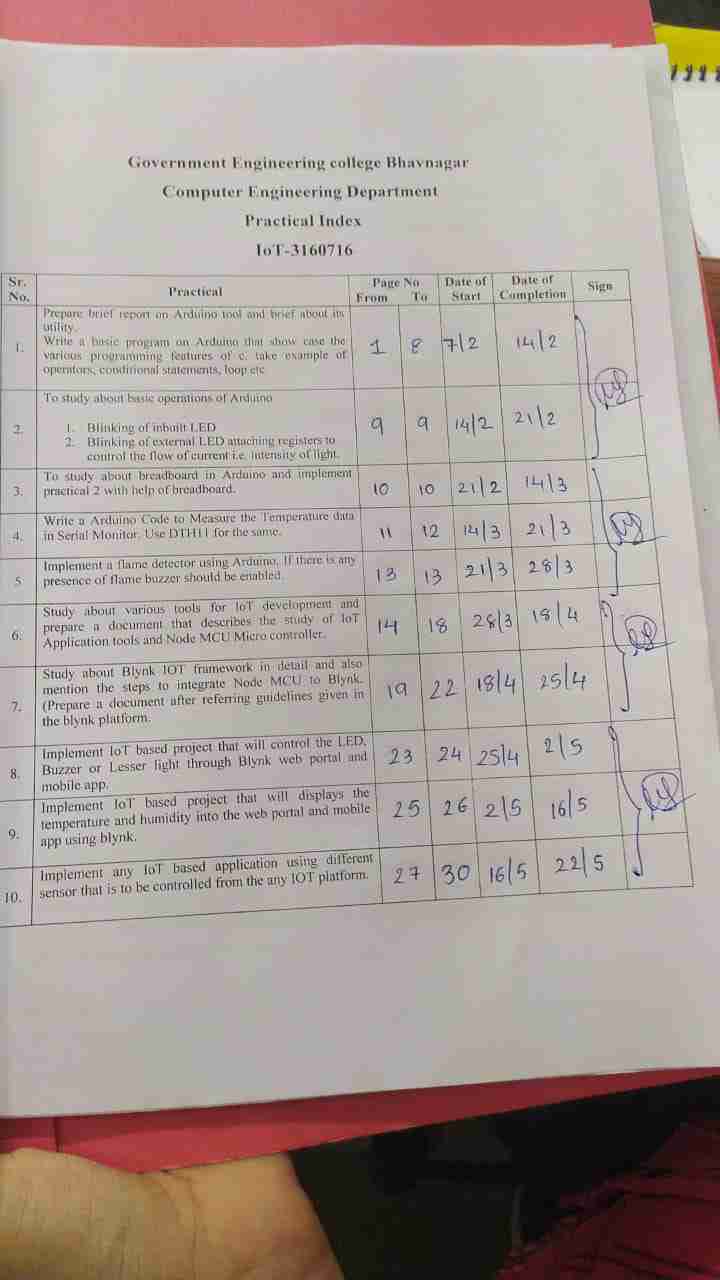 Government Engineering college Bhavnagar
Computer Engineering Department
Practical Index
IoT-3160716
Sr. No. Practical Page No From To Date of Start Date of Completion Sign
1. Prepare brief report on Arduino tool and brief about its
utility.
Write a basic program on Arduino that show case the
various programming features of c. take example of
operators, conditional statements, loop etc
1 8 7/2 14/2
2. To study about basic operations of Arduino
1. Blinking of inbuilt LED
2. Blinking of external LED attaching registers to
control the flow of current i.e. intensity of light.
9 9 14/2 21/2
3. To study about breadboard in Arduino and implement
practical 2 with help of breadboard.
10 10 21/2 14/3
4. Write a Arduino Code to Measure the Temperature data
in Serial Monitor. Use DTH11 for the same.
11 12 14/3 21/3
5 Implement a flame detector using Arduino. If there is any
presence of flame buzzer should be enabled.
13 13 21/3 28/3
6. Study about various tools for IoT development and
prepare a document that describes the study of IoT
Application tools and Node MCU Micro controller.
14 18 28/3 18/4
7. Study about Blynk IOT framework in detail and also
mention the steps to integrate Node MCU to Blynk.
(Prepare a document after referring guidelines given in
the blynk platform.
19 22 18/4 25/4
8. Implement IoT based project that will control the LED,
Buzzer or Lesser light through Blynk web portal and
mobile app.
23 24 25/4 2/5
9. Implement IoT based project that will displays the
temperature and humidity into the web portal and mobile
app using blynk.
25 26 2/5 16/5
10. Implement any IoT based application using different
sensor that is to be controlled from the any IOT platform.
27 30 16/5 22/5